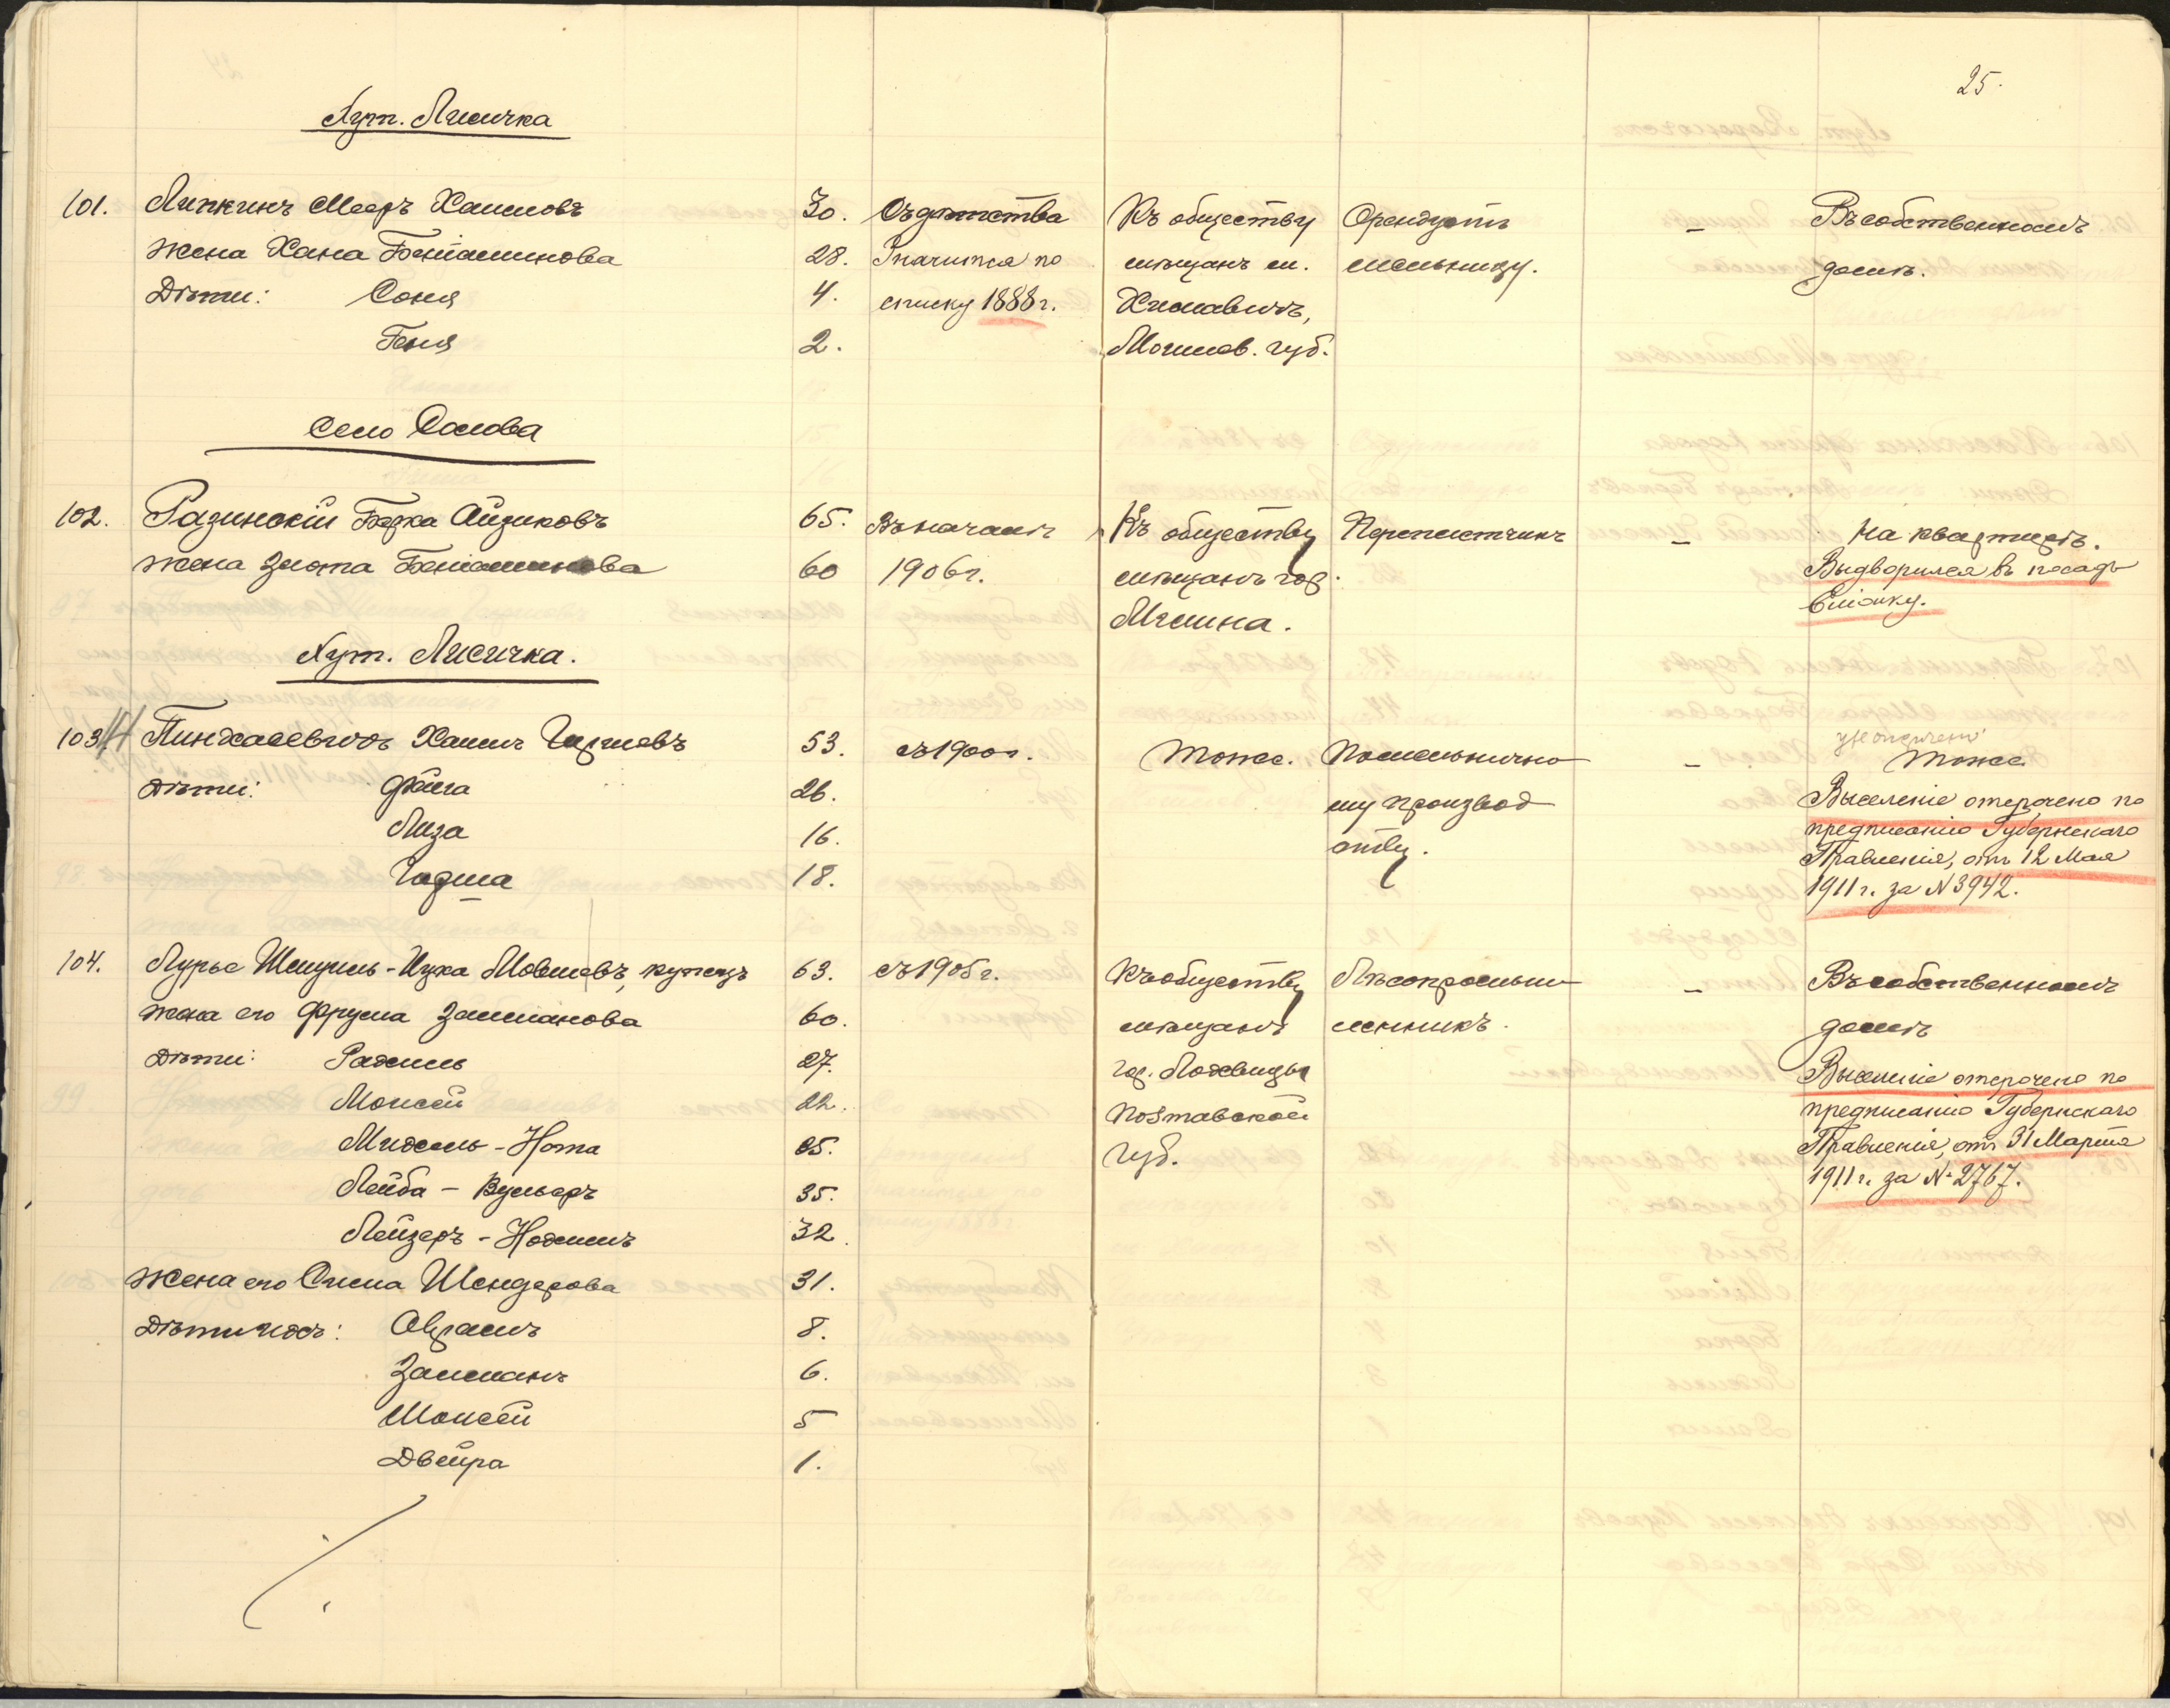 25.
Хут. Лисичка
101. Липкинъ Мееръ Хаимовъ 30. Съ дѣтства Къ обществу Орендуетъ – Въ собственномъ
жена Хана Беніаминова 28. Значится по мѣщанъ м. мельницу. домѣ.
Дѣти: Соня 4. списку 1888 г. Хиславичъ,
Геня 2. Могилев. губ.
Село Солова
102. Разинскій Берка Айзиковъ 65. Въ началѣ Къ обществу Переплетчикъ – На квартирѣ.
жена Злота Беніаминова 60 1906 г. мѣщанъ гор. Выдворился въ посадъ
Мглина. Клинцы.
Хут. Лисичка.
103 Пинхасевичъ Хаимъ Гиршевъ 53. съ 1900 г. Тоже. По мельнично – Тоже
Дѣти: Фейга 26. му производ Выселеніе отсрочено по
Лиза 16. ству. предписанію Губернскаго
Гадша 18. Правленія, отъ 12 Мая
1911 г. за N 3942.
104. Лурье Шмуиль-Ицка Мовшевъ, купецъ 63. съ 1905 г. Къ обществу Лѣсопромыш – Въ собственномъ
жена его Фрума Залманова 60. мѣщанъ ленникъ. домѣ
Дѣти: Рахиль 27. гор. Лохвицы Выселеніе отсрочено по
Моисей 22. Полтавской предписанію Губернскаго
Михель-Нота 25. губ. Правленія, отъ 31 Марта
Лейба – Вульфъ 35. 1911 г. за N 2767.
Лейзеръ – Нохимъ 32.
Жена его Сима Шендерова 31.
Дѣти ихъ: Абрамъ 8.
Залманъ 6.
Моисей 5
Двейра 1.